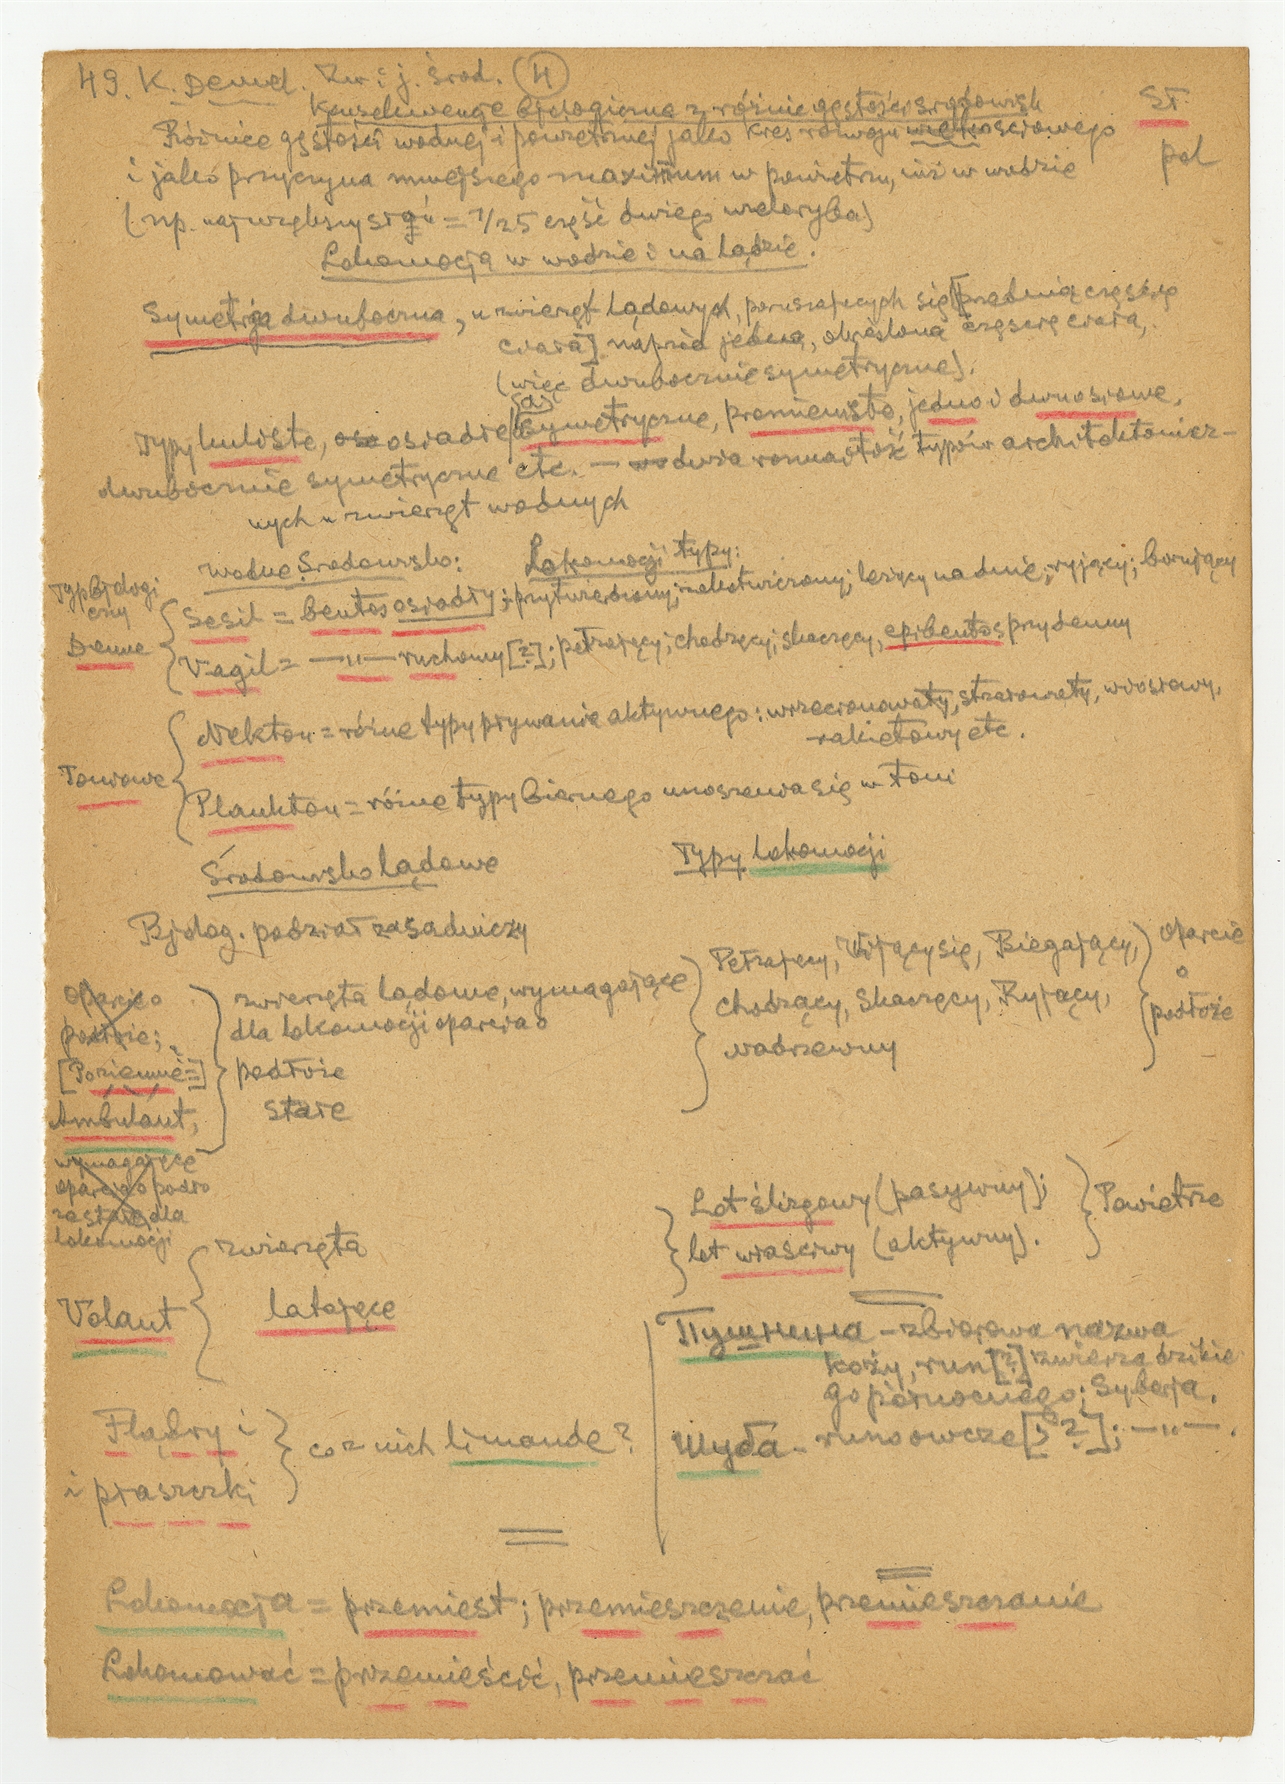 49. K. Demel. Zw i j. środ. 4
Konsekwencje bjologiczne z różnic gęstości środowisk
Sł.
Różnice gęstości wodnej i powietrznej jako kres rozwoju wielkościowego
pol
i jako przyczyna mniejszego maximum w powietrzu, niż w wodzie
(np. największy słoń = 1/25 część dużego wieloryba)
Lokomocja w wodzie i na lądzie.
Symetrja dwuboczna, u zwierząt lądowych, poruszających się [przednią częścią
ciała] naprzód jedną, określoną częścią ciała,
(więc dwubocznie symetryczne).
Typy kuliste, osiadłe (a)symetryczne, promieniste, jedno i dwuosiowe,
dwubocznie symetryczne etc. — duża rozmaitość typów architektonicz-
nych u zwierząt wodnych
Wodne Środowisko: Lokomocji typy:
Typ bjologi
czny
Denne
Sesil = bentos osiadły; przytwierdzony; zakotwiczony; leżący na dnie; ryjący; borujący
Vagil = —"— ruchomy [?]; pełzający; chodzący; skaczący, epibentos przydenny
Toniowe
Nekton = różne typy pływania aktywnego: wrzecionowaty, strzałowaty, wiosłowy,
rakietowy etc.
Plankton = różne typy biernego unoszenia się w toni
Środowisko lądowe Typy lokomocji
Bjolog. podział zasadniczy
oparcie o
podłoże;
[Poziemne=]
Ambulant,
wymagające
oparcia o podło
że stałe dla
lokomocji
zwierzęta lądowe, wymagające
dla lokomocji oparcia o
podłoże
stałe
Pełzający, Wijący się, Biegający,
chodzący, Skaczący, Ryjący,
nadrzewny
oparcie
o
podłoże
Volant
zwierzęta
latające
Lot ślizgowy (pasywny);
lot właściwy (aktywny).
Powietrze
Пушнина – zbiorowa nazwa
koży, run [?] zwierza dzikie
go północnego; Syberja.
Шуба – runo owcze [?]; —"—.
Flądry i
i płaszczki
co z nich limande?
Lokomocja = przemiest; przemieszczenie, przemieszczanie
Lokomować = przemieścić, przemieszczać